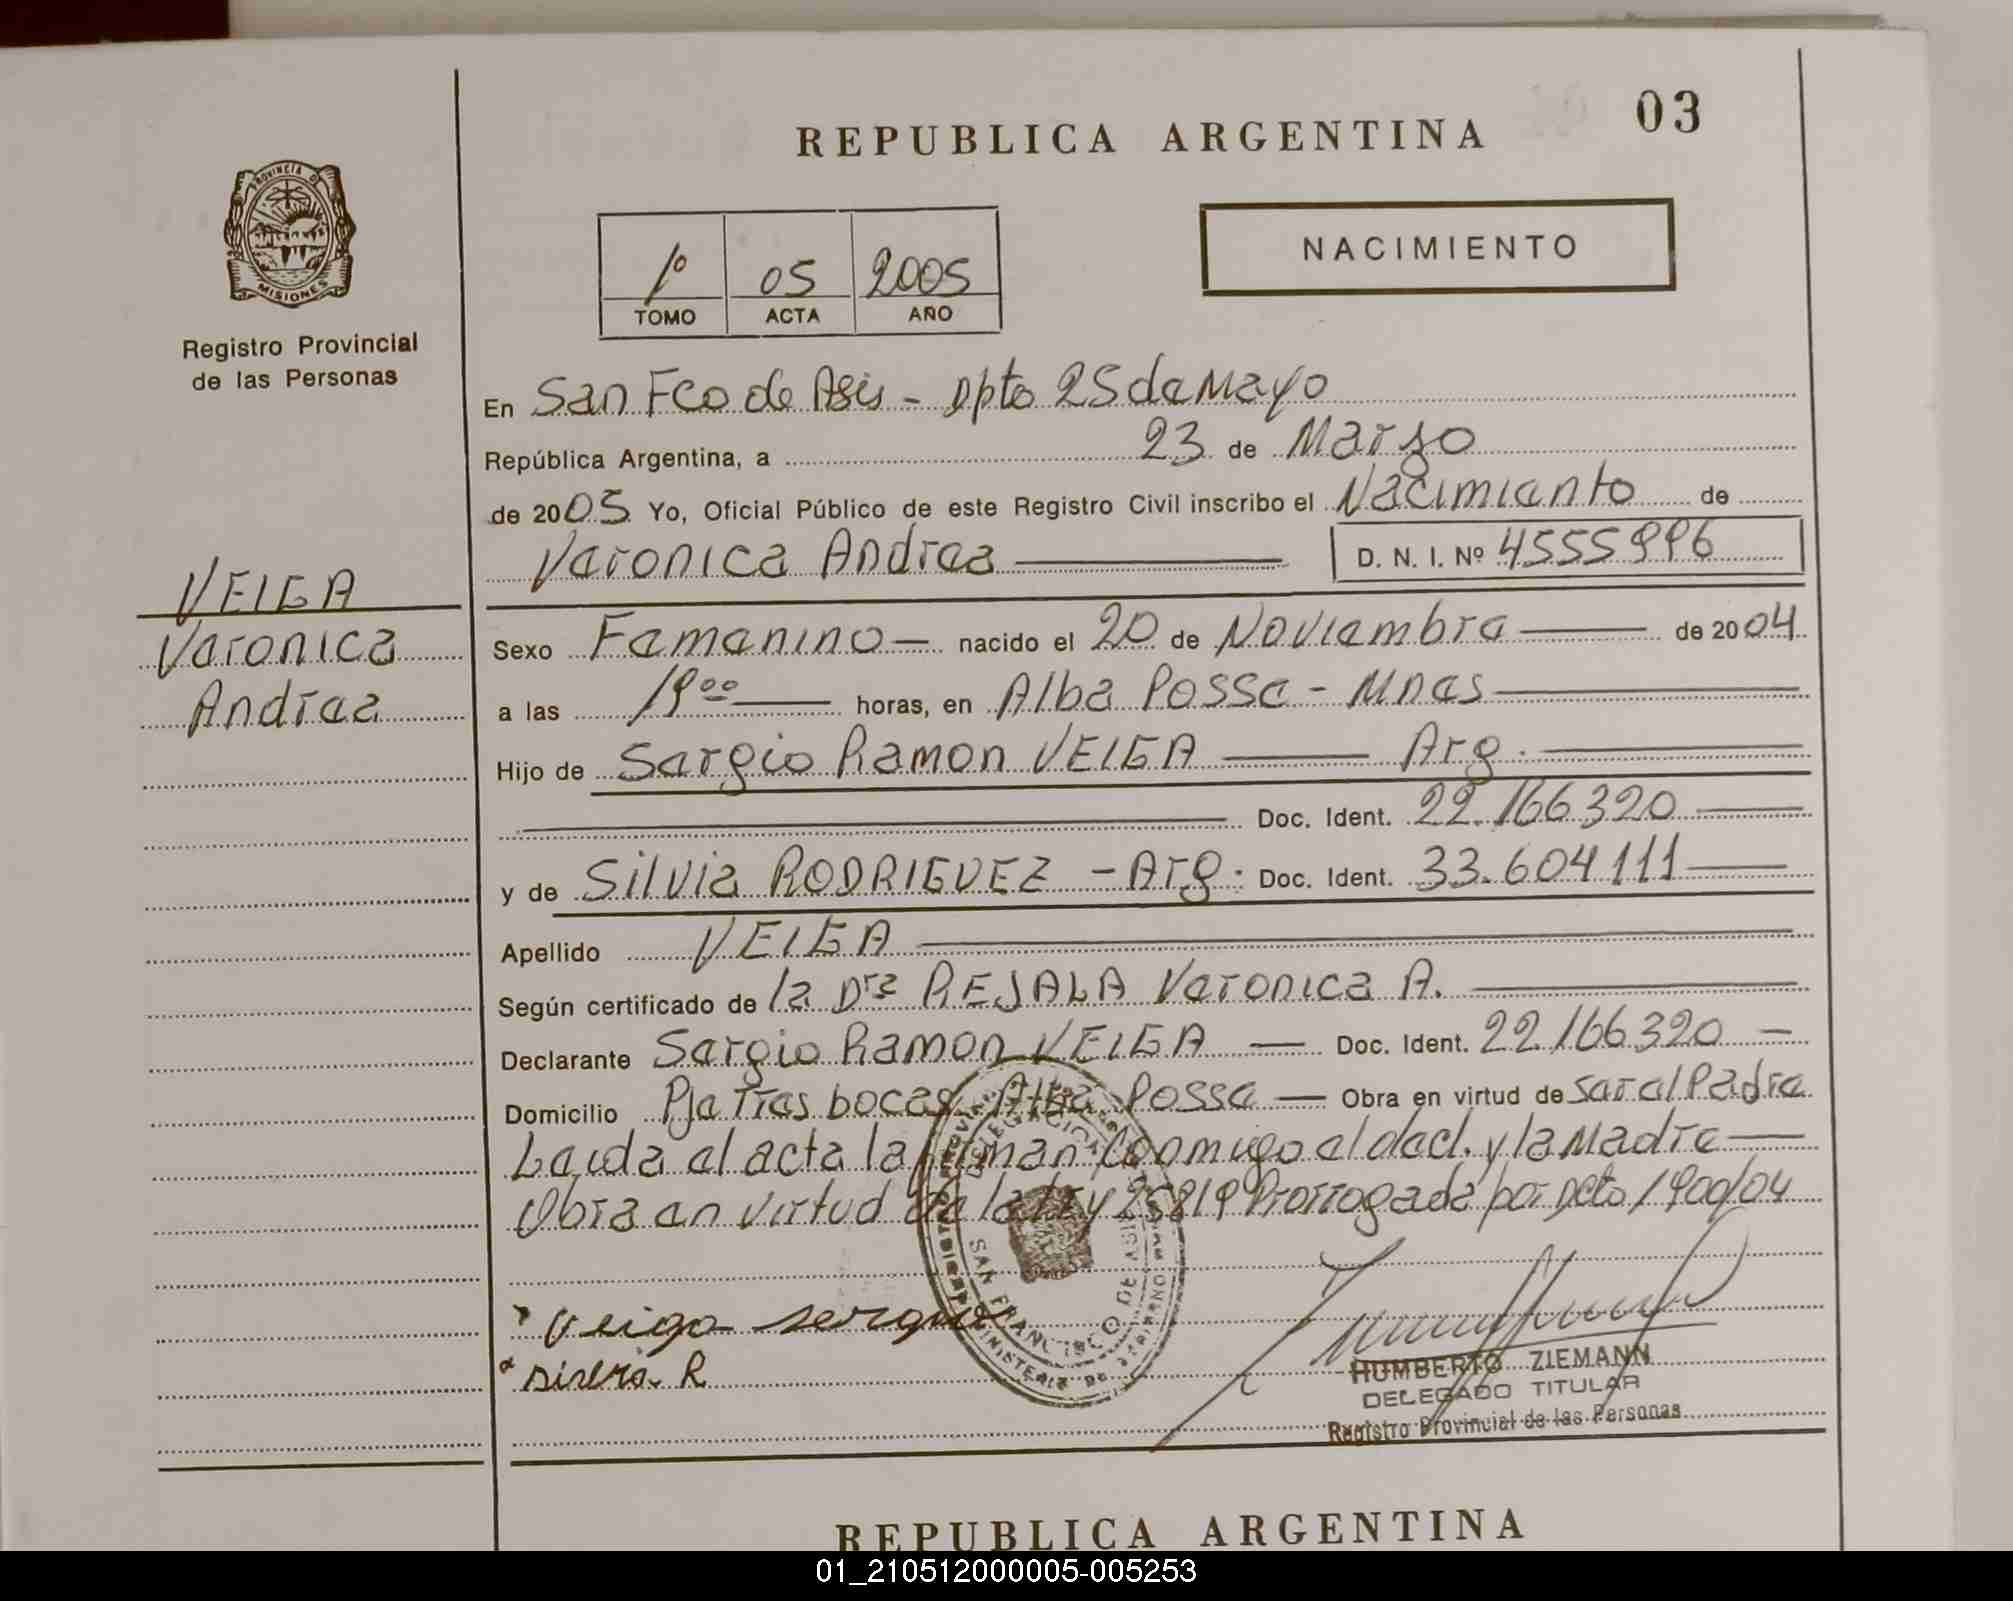 03
REPUBLICA ARGENTINA
NACIMIENTO
1º 05 2005
TOMO ACTA AÑO
PROVINCIA DE
MISIONES
Registro Provincial
de las Personas
En San Fco de Asis - Dpto 25 de Mayo
República Argentina, a 23 de Marzo
de 2005 Yo, Oficial Público de este Registro Civil inscribo el Nacimiento de
Veronica Andrea D. N. I. Nº
VEIGA
Veronica
Andrea
Sexo Femenino nacido el 20 de Noviembre de 2004
a las 19⁰⁰ horas, en Alba Posse - Mnes
Hijo de Sergio Ramon VEIGA Arg.
Doc. Ident. 22.166.320
y de Silvia RODRIGUEZ - Arg. Doc. Ident. 33.604.111
Apellido VEIGA
Según certificado de la Dra REJALA Veronica A.
Declarante Sergio Ramon VEIGA Doc. Ident. 22.166.320
Domicilio Pje Tres bocas Alba Posse Obra en virtud de ser el Padre
Leida el acta la firman Conmigo el decl. y la Madre
Obra en virtud de la ley 25819 Prorrogada por Dcto 1900/04
Veiga sergio
silvia R
SAN FRANCISCO DE ASIS
HUMBERTO ZIEMANN
DELEGADO TITULAR
Registro Provincial de las Personas
REPUBLICA ARGENTINA
01_210512000005-005253